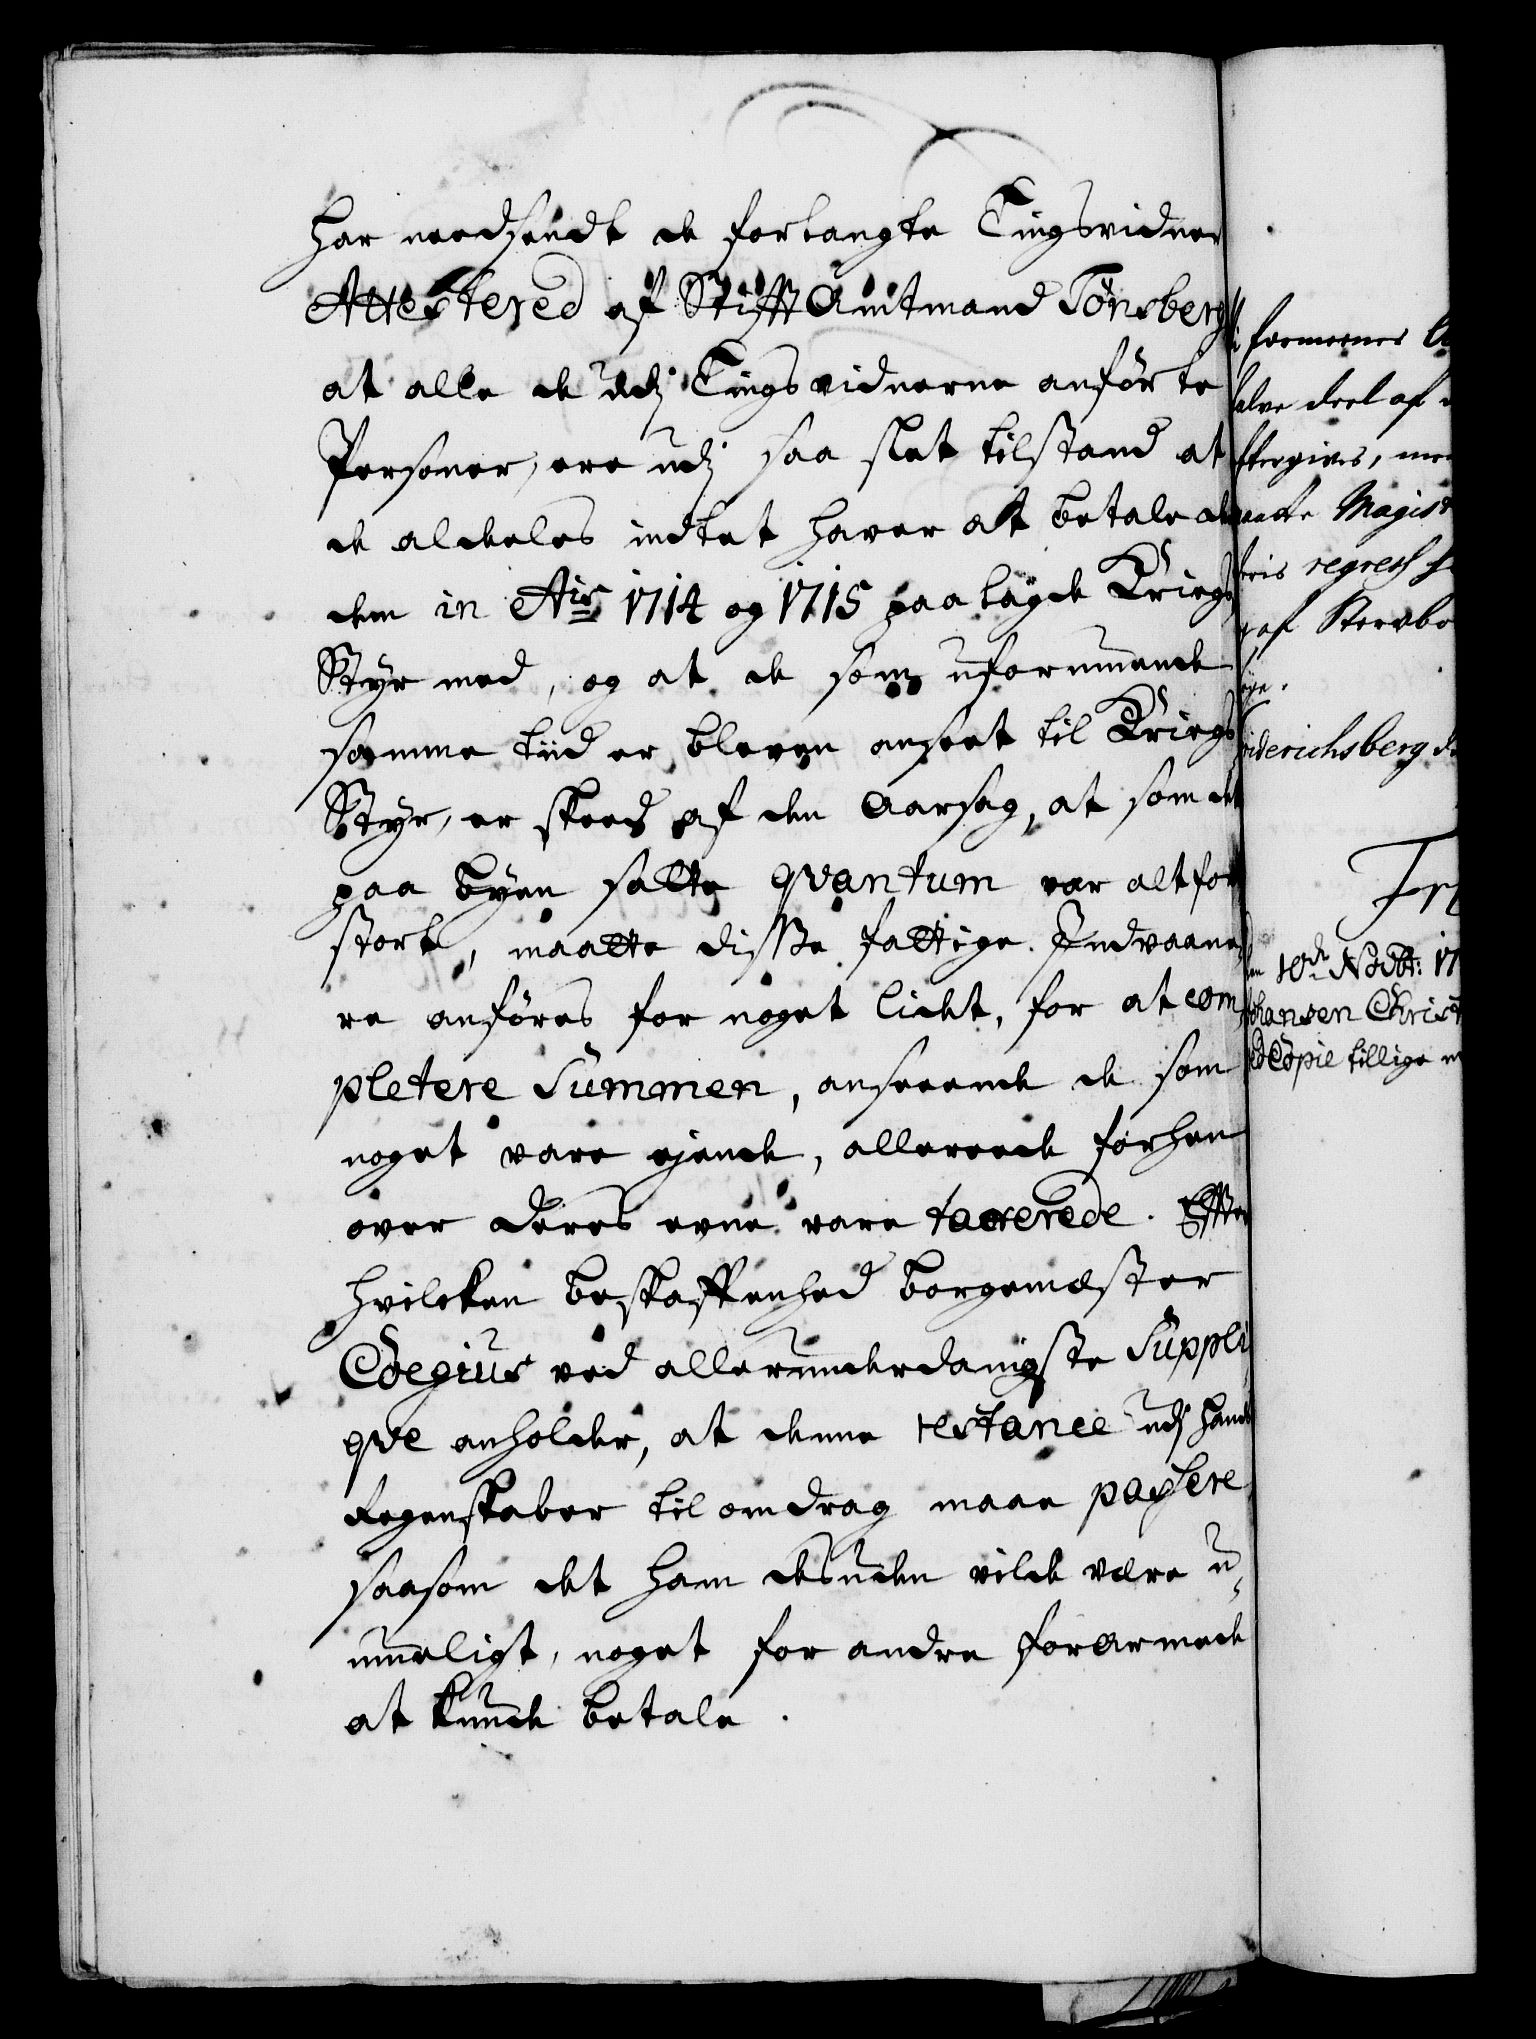 har needsendt de forlangte Tingsvidner
Attestered af Stifft Amtmand Tönsberg
at alle de udj Tingsvidnerne anförte
Personer, ere udj saa slet tilstand at
de aldeles indtet haver at betale de
dem in Ais 1714 og 1715 paalagde Kriegs
Styr med, og at de som uformuende
samme tiid er bleven anseet til Kriegs
Styr, er skeed af den Aarsag, at som det
paa byen satte qvantum var altfor
stort, maatte disse fattige Indvaane
re anföres for noget lidet, for at com
pletere Summen, anseende de som
noget vare ejende, allereede forhen
over deres evne vare taxerede. Effter
hvilcken beskaffenhed borgemester
Coegius ved allerunderdanigste Suppli
qve anholder, at denne restance udj hans
Regenskaber til omdrag maae passere
saasom det ham desuden vilde være u-
mueligt, noget for andre forarmede
at kunde betale.
formoenes
alve deel af
fftergives, men
Magist
ris regress
af Sterbo
øye.
iderichsberg d
Fri
10de Novbr: 17
hansen Christ
Copie tillige m